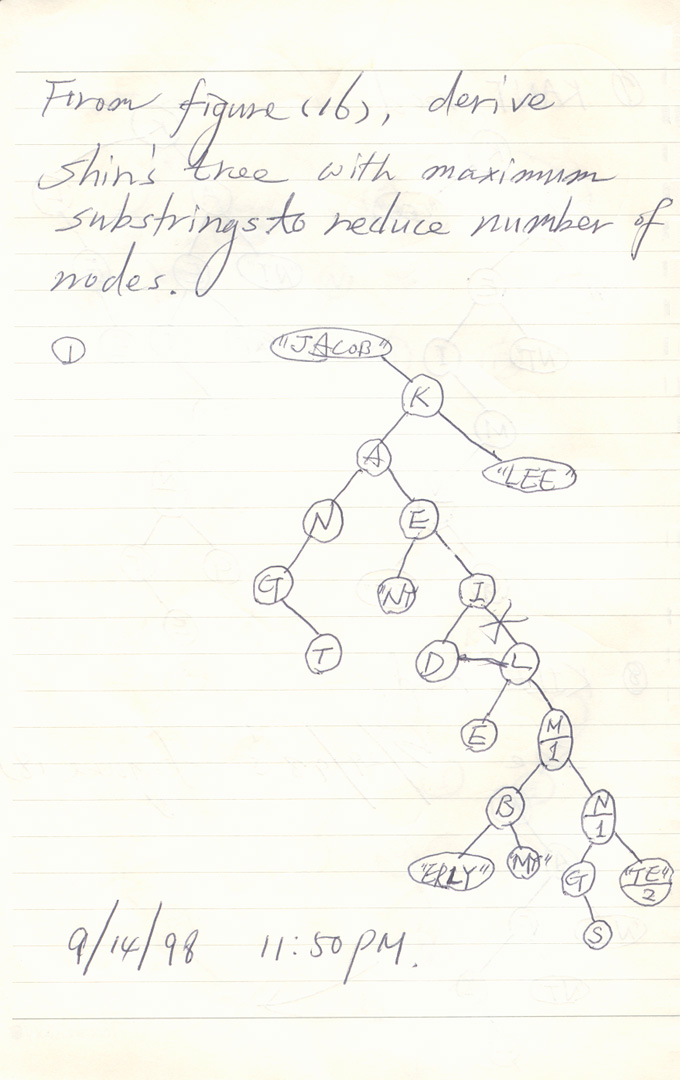 From figure (16), derive
Shin's tree with maximum
substrings to reduce number of
nodes.
①
"JACOB"
K
A
"LEE"
N
E
G
"NT"
I
T
D
L
E
M
1
B
N
1
"ERLY"
"MY"
G
"TE"
2
S
9/14/98 11:50 PM.